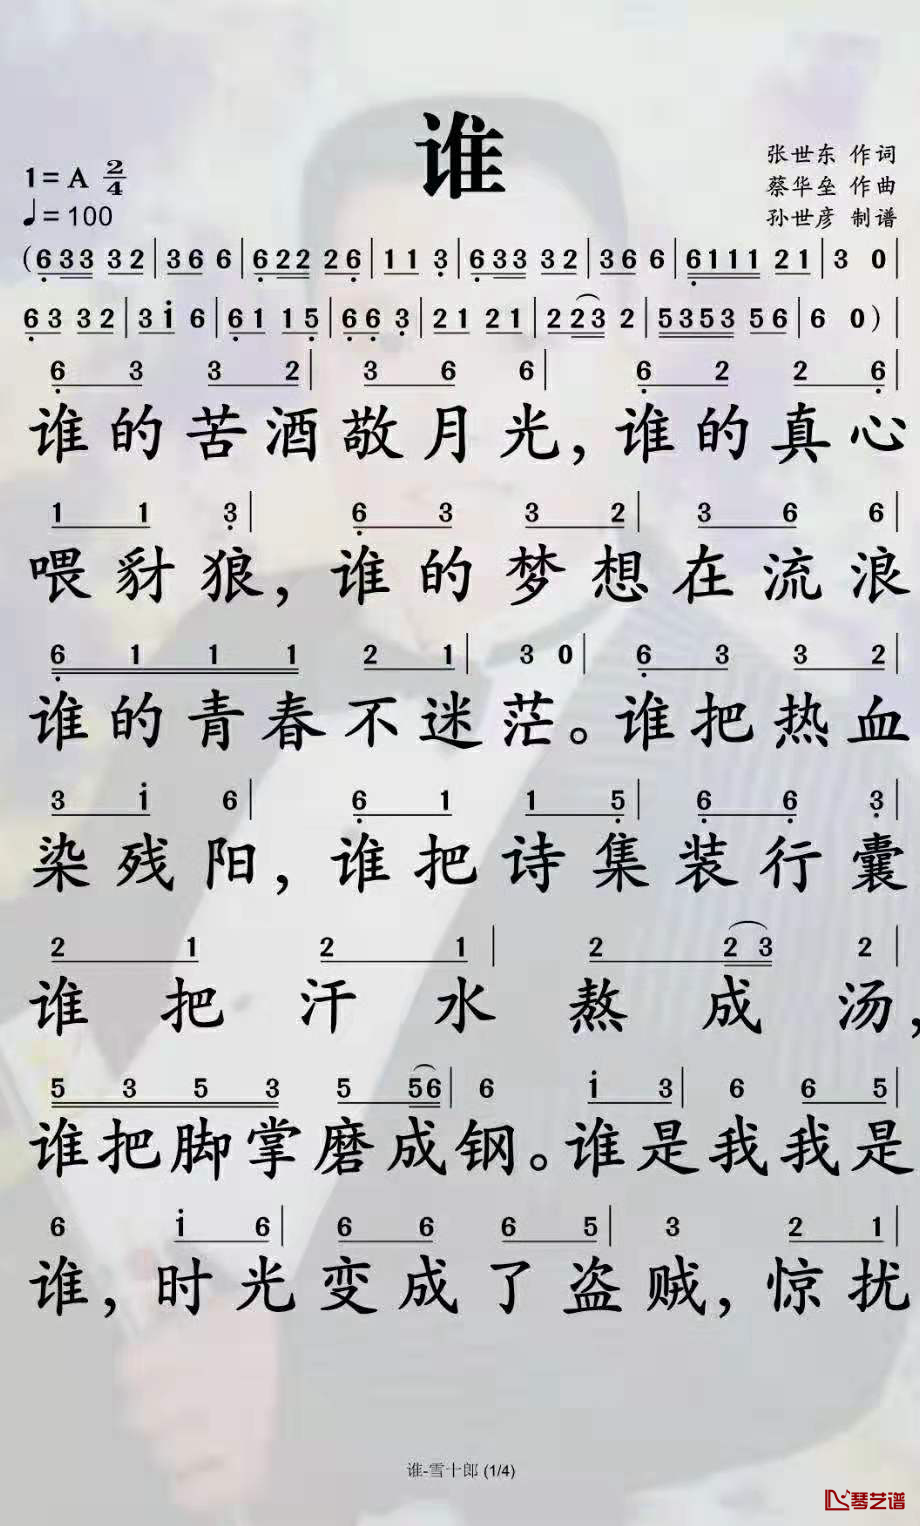 谁
1=A 2/4
♩=100
张世东 作词
蔡华垒 作曲
孙世彦 制谱
(633 32|366|622 26|113|633 32|366|6111 21|3 0|
63 32|3i 6|61 15|66 3|21 21|223 2|5353 56|6 0)|
6 3 3 2|3 6 6|6 2 2 6
谁的苦酒敬月光，谁的真心
1 1 3|6 3 3 2|3 6 6|
喂豺狼，谁的梦想在流浪
6 1 1 1 2 1|3 0|6 3 3 2|
谁的青春不迷茫。谁把热血
3 i 6|6 1 1 5|6 6 3|
染残阳，谁把诗集装行囊
2 1 2 1|2 2 3 2|
谁把汗水熬成汤，
5 3 5 3 5 56|6 i 3|6 6 5
谁把脚掌磨成钢。谁是我我是
6 i 6|6 6 6 5|3 2 1|
谁，时光变成了盗贼，惊扰
谁-雪十郎 (1/4)
琴艺谱